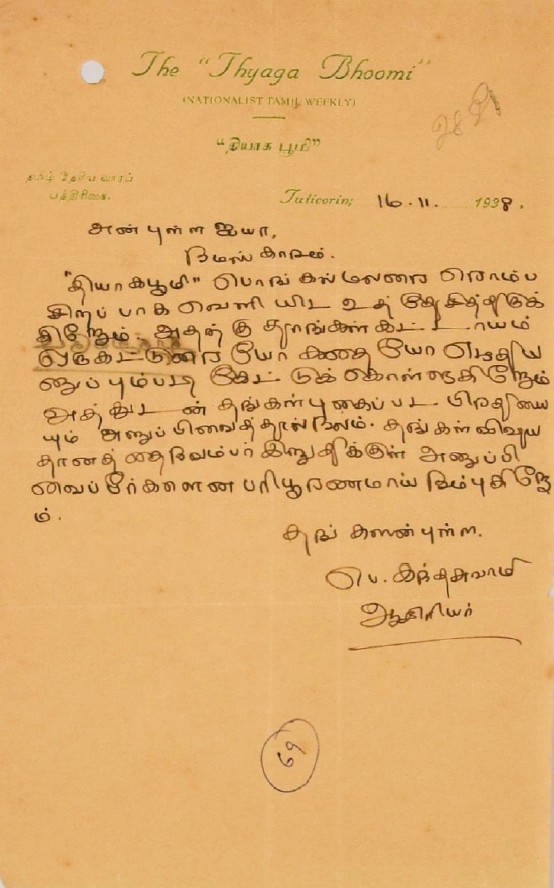 The "Thyaga Bhoomi"
(NATIONALIST TAMIL WEEKLY)
"தியாக பூமி"
தமிழ் தேசிய வாரப்
பத்திரிகை.
Tuticorin; 16.11. 1938.
அன்புள்ள ஐயா,
நமஸ்காரம்.
"தியாகபூமி" பொங்கல்மலரை ரொம்ப
சிறப்பாக வெளியிட உத்தேசித்திருக்
கிறோம் அதற்கு தாங்கள் கட்டாயம்
ஒருகட்டுரையோ கதையோ எழுதிய
னுப்பும்படி கேட்டுக்கொள்ளுகிறோம்
அத்துடன் தங்கள் புகைப்பட பிரதியை
யும் அனுப்பிவைத்தால் நலம். தங்கள் விஷய
தானத்தை நவம்பர் இறுதிக்குள் அனுப்பி
வைப்பீர்களென பரிபூரணமாய் நம்புகிறே
ம்.
தங்களன்புள்ள.
பெ. கந்தசுவாமி
ஆசிரியர்
69